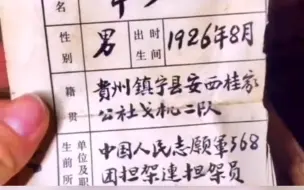 名
性别 男 出生时间 1926年8月
籍贯 貴州镇宁县安西桂家
公社戈机二队
生前所 单位及职 中国人民志願軍568
团担架連担架员